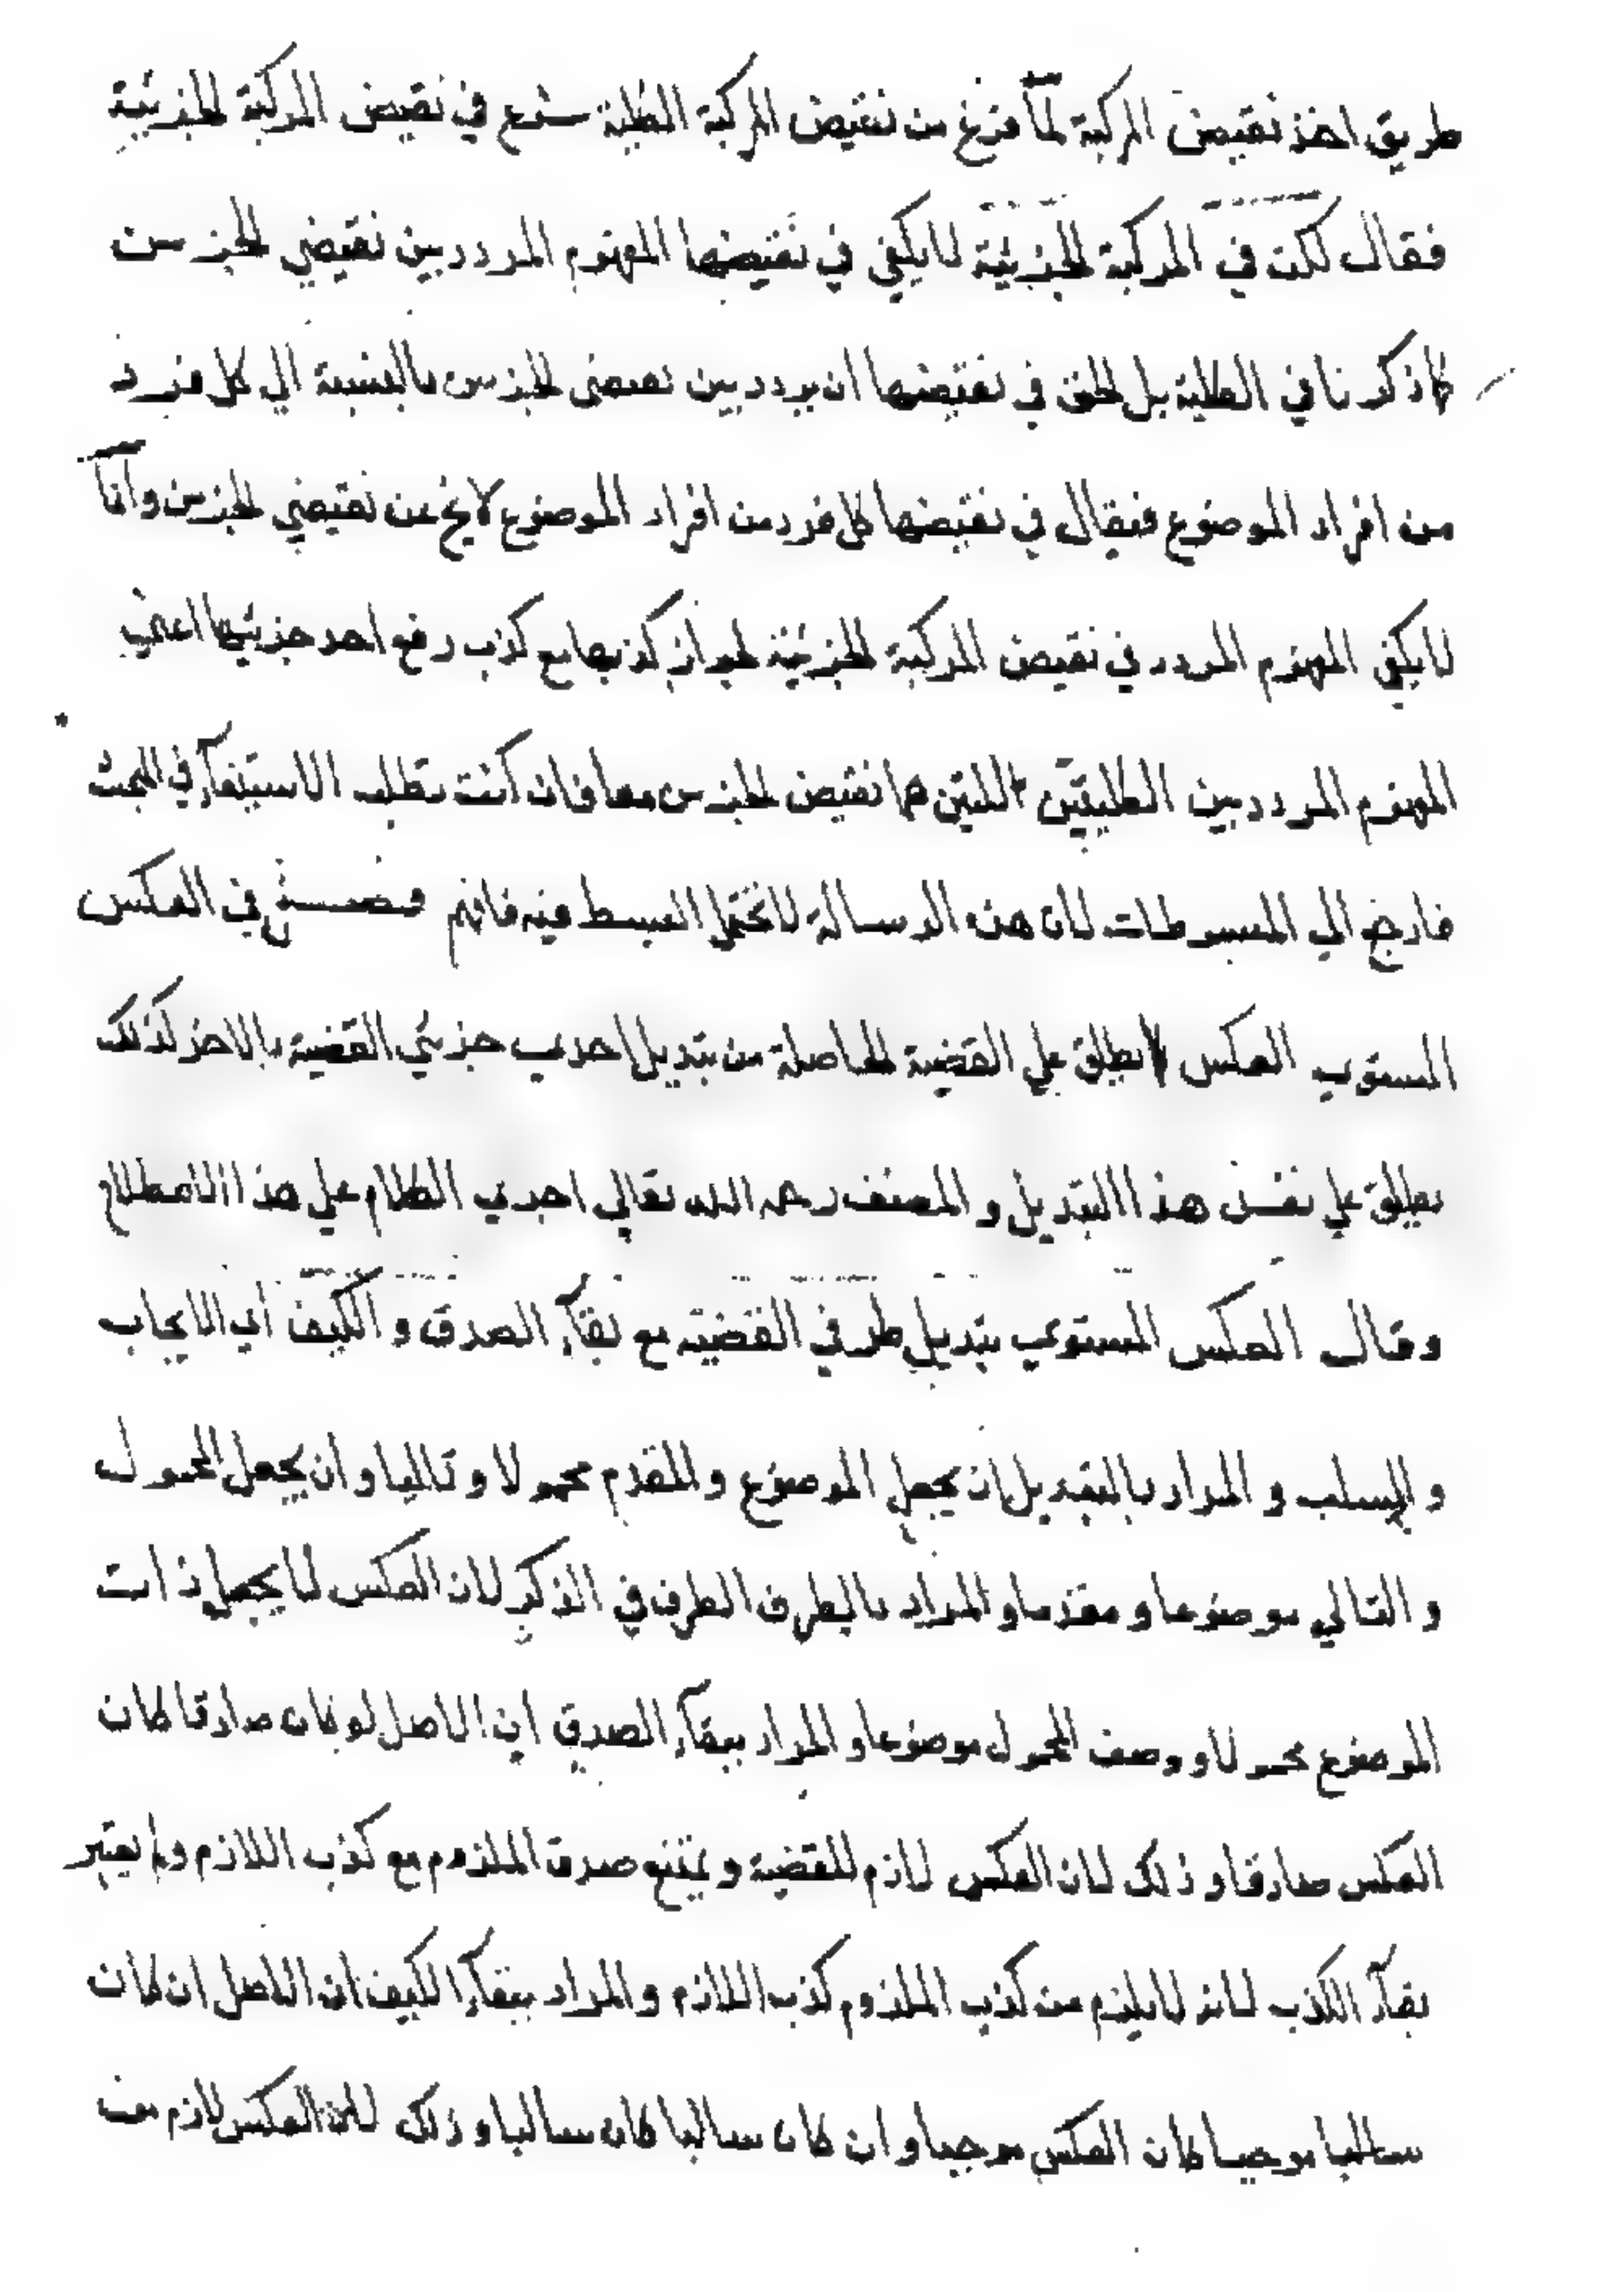 طريق اخذ نقيض المركبة لمآ فرغ من نقيض المركبة الكلية شرع في نقيض المركبة الجزئية
فقال لكن في المركبة الجزئية لا يكفي في نقيضها المفهوم المردد بين نقيضي الجزئين
كما ذكرنا في الكلية بل الحق في نقيضها ان يردد بين نقيضي الجزئين بالنسبة الي كل فرد
من افراد الموضوع فيقال في نقيضها كل فرد من افراد الموضوع لا يخ عن نقيضي الجزئين وانما
لا يكفي المفهوم المردد في نقيض المركبة الجزئية لجواز كذبها مع كذب رفع احد جزئيها اعني
المفهوم المردد بين الكليتين اللتين هما نقيض الجزئين معا فان كنت تطلب الاستيفآء في البحث
فارجع الي المبسوطات لان هذه الرسالة لا تحتمل البسط فيه فافهم فصل في العكس
المستوي العكس يطلق علي القضية الحاصلة من تبديل احدي جزئي القضية بالاخر كذلك
يطلق علي نفس هذا التبديل و المصنف رحمه الله تعالي اجري الكلام علي هذا الاصطلاح
وقال العكس المستوي تبديل طرفي القضية مع بقآء الصدق و الكيف اي الايجاب
و السلب و المراد بالتبديل ان يجعل الموضوع و المقدم محمولا و تاليا و ان يجعل المحمول
و التالي موضوعا و مقدما و المراد بالطرف الطرف في الذكر لان العكس لا يجعل ذات
الموضوع محمولا و وصف المحمول موضوعا و المراد ببقآء الصدق ان الاصل لو كان صادقا كان
العكس صادقا و ذلك لان العكس لازم للقضية و يمتنع صدق الملزوم مع كذب اللازم و لم يعتبر
بقآء الكذب لانه لا يلزم من كذب الملزوم كذب اللازم و المراد ببقآء الكيف ان الاصل ان كان
موجبا كان العكس موجبا و ان كان سالبا كان سالبا و ذلك لان العكس لازم من